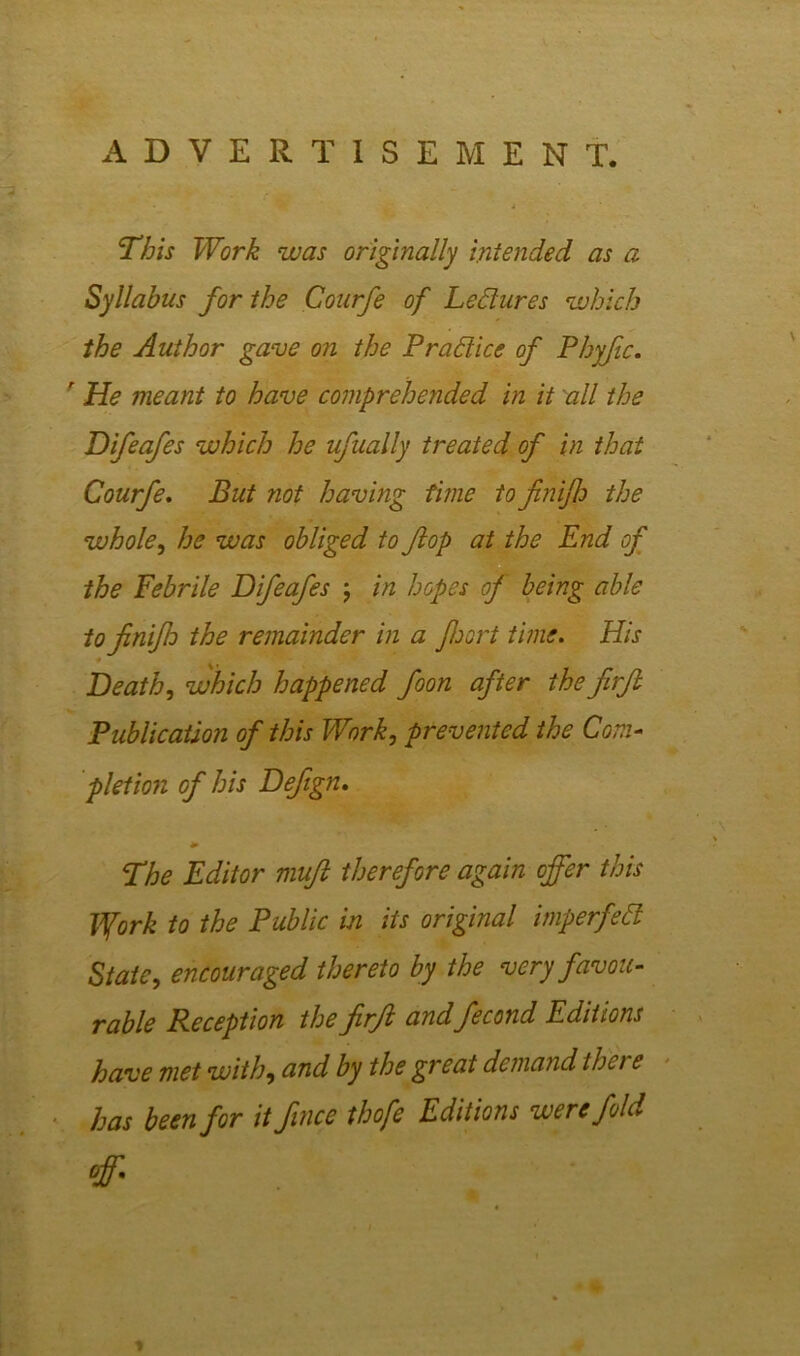 ADVERTISEMENT.
This Work was originally intended as a
Syllabus for the Courſe of Lectures which
the Author gave on the Practice of Phyſic.
He meant to have comprehended in it all the
Diſeaſes which he uſually treated of in that
Courſe. But not having time to finiſh the
whole, he was obliged to ſtop at the End of
the Febrile Diſeaſes ; in hopes of being able
to finiſh the remainder in a ſhort time. His
Death, which happened ſoon after the firſt
Publication of this Work, prevented the Com-
pletion of his Deſign.
The Editor muſt therefore again offer this
Work to the Public in its original imperfect
State, encouraged thereto by the very favou-
rable Reception the firſt and ſecond Editions
have met with, and by the great demand there
has been for it ſince thoſe Editions were ſold
off.